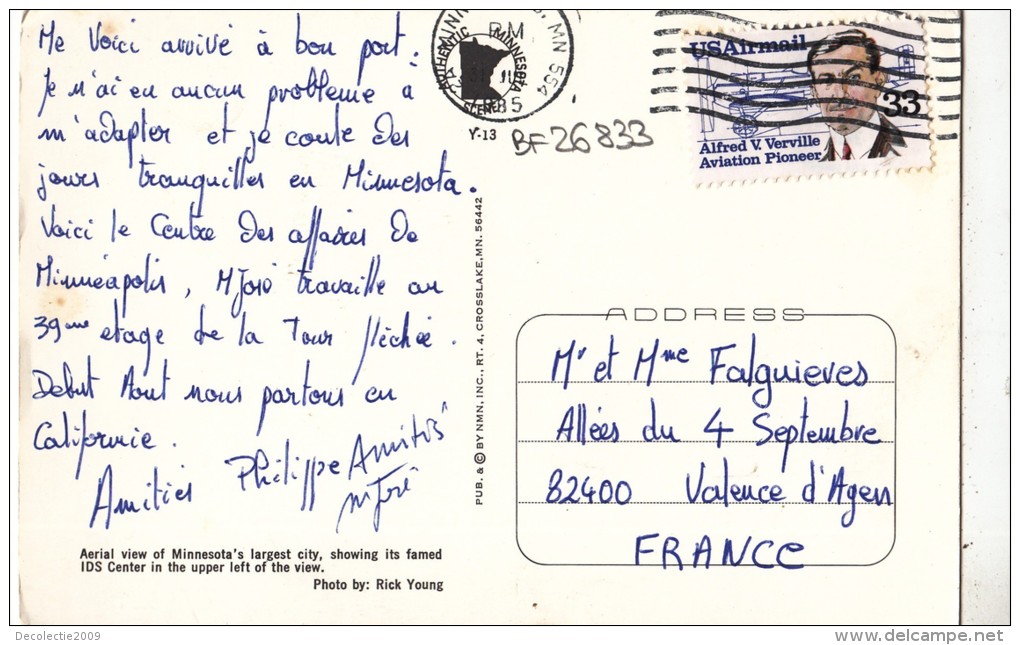 Me Voici arrivé à bon port.
Je n'ai eu aucun problème a
m'adapter et je coule des
jours tranquilles en Minnesota.
Voici le Centre des affaires de
Minnéapolis, M José travaille au
39eme etage de la Tour fléchée.
Debut Aout nous partons en
Californie.
Amitiés Philippe Amitiés
M José
Aerial view of Minnesota's largest city, showing its famed
IDS Center in the upper left of the view.
Photo by: Rick Young
PUB. & © BY NMN, INC., RT. 4, CROSSLAKE, MN. 56442
PM
MN 554
AUTHENTIC MINNESOTA SCENE
Y-13
BF26833
USAirmail
33
Alfred V. Verville
Aviation Pioneer
ADDRESS
Mr et Mme Falguieves
Allées du 4 Septembre
82400 Valence d'Agen
FRANCE
Decolectie2009
www.delcampe.net